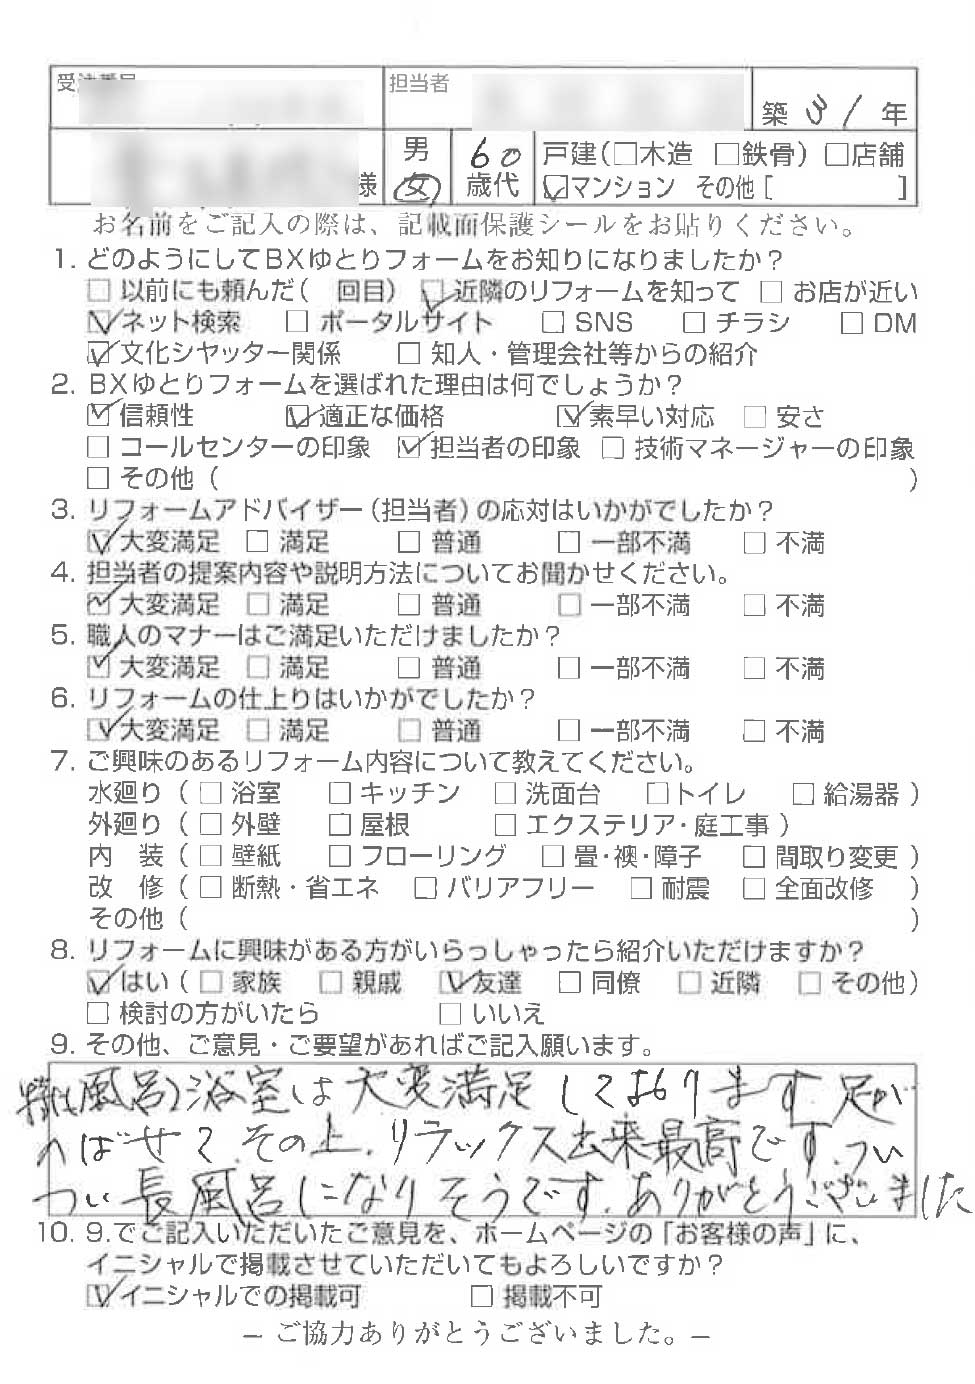 受注番号 担当者 築 31 年
様 男 女 60 歳代 戸建(□木造 □鉄骨) □店舗
☑マンション その他[ ]
お名前をご記入の際は、記載面保護シールをお貼りください。
1. どのようにしてBXゆとりフォームをお知りになりましたか?
□ 以前にも頼んだ( 回目) ☑ 近隣のリフォームを知って □ お店が近い
☑ ネット検索 □ ポータルサイト □ SNS □ チラシ □ DM
☑ 文化シヤッター関係 □ 知人・管理会社等からの紹介
2. BXゆとりフォームを選ばれた理由は何でしょうか?
☑ 信頼性 ☑ 適正な価格 ☑ 素早い対応 □ 安さ
□ コールセンターの印象 ☑ 担当者の印象 □ 技術マネージャーの印象
□ その他( )
3. リフォームアドバイザー(担当者)の応対はいかがでしたか?
☑ 大変満足 □ 満足 □ 普通 □ 一部不満 □ 不満
4. 担当者の提案内容や説明方法についてお聞かせください。
☑ 大変満足 □ 満足 □ 普通 □ 一部不満 □ 不満
5. 職人のマナーはご満足いただけましたか?
☑ 大変満足 □ 満足 □ 普通 □ 一部不満 □ 不満
6. リフォームの仕上りはいかがでしたか?
☑ 大変満足 □ 満足 □ 普通 □ 一部不満 □ 不満
7. ご興味のあるリフォーム内容について教えてください。
水廻り(□ 浴室 □ キッチン □ 洗面台 □トイレ □ 給湯器)
外廻り(□ 外壁 □ 屋根 □ エクステリア・庭工事)
内 装(□ 壁紙 □ フローリング □ 畳・襖・障子 □ 間取り変更)
改 修(□ 断熱・省エネ □ バリアフリー □ 耐震 □ 全面改修 )
その他( )
8. リフォームに興味がある方がいらっしゃったら紹介いただけますか?
☑はい(□ 家族 □ 親戚 ☑友達 □ 同僚 □ 近隣 □ その他)
□ 検討の方がいたら □ いいえ
9. その他、ご意見・ご要望があればご記入願います。
特に(風呂)浴室は大変満足しております.足が
のばせて.その上.リラックス出来最高です.つい
つい長風呂になりそうです.ありがとうございました
10. 9.でご記入いただいたご意見を、ホームページの「お客様の声」に、
イニシャルで掲載させていただいてもよろしいですか?
☑イニシャルでの掲載可 □ 掲載不可
− ご協力ありがとうございました。−